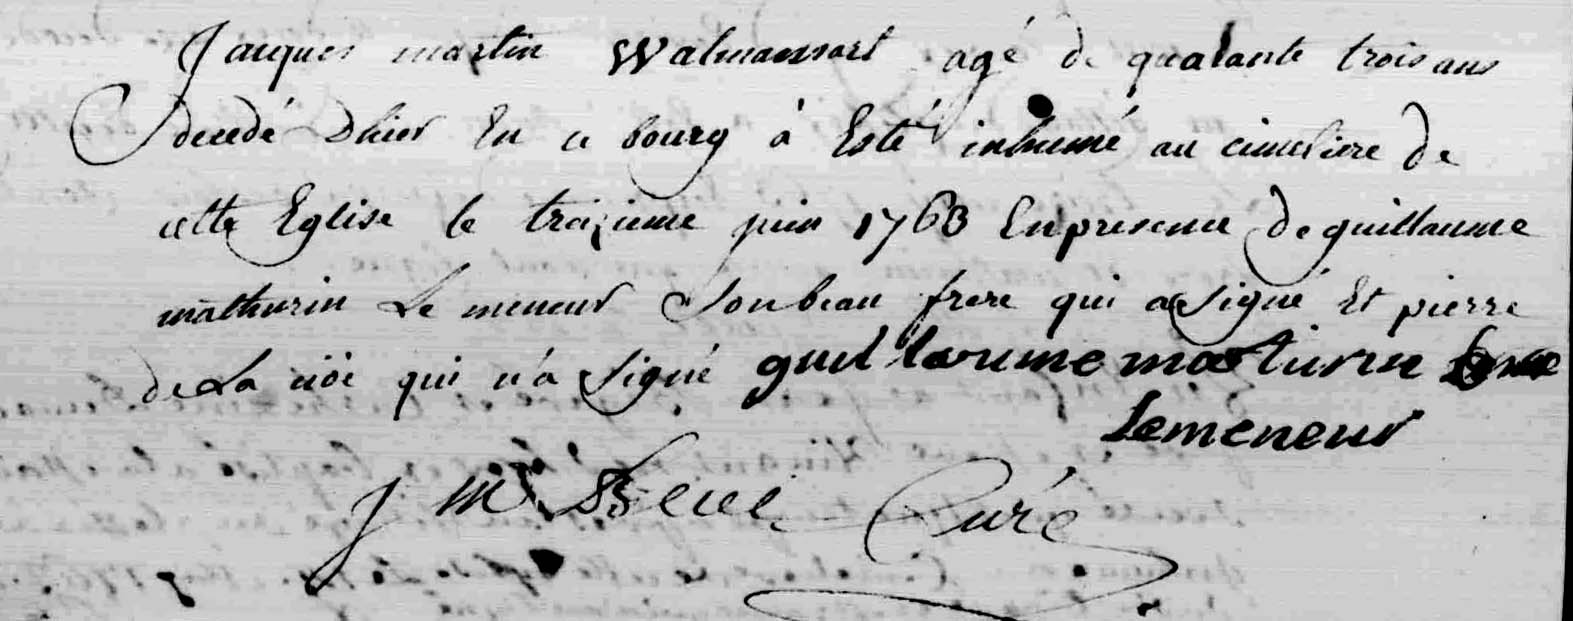 Jacques martin Walmansart agé de quarante trois ans
decedé Dhier En ce bourg à Esté inhumé au cimetiere de
cette Eglise le treizieme juin 1763 En presence de guillaume
mathurin Le meneur Son beau frere qui a Signé Et pierre
de La nöe qui n'a Signé guillaume maturin
Lemeneur
J M Curé